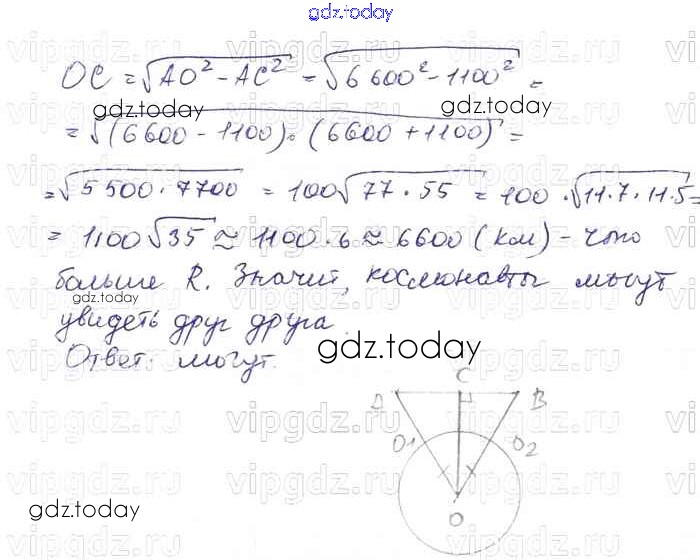 gdz.today
OC = √(AO² - AC²) = √(6600² - 1100²) =
gdz.today gdz.today
= √((6600 - 1100)·(6600 + 1100)) =
= √(5500·7700) = 100√(77·55) = 100·√(11·7·11·5) =
= 1100√35 ≈ 1100·6 ≈ 6600 (км) - что
больше R. Значит, космонавты могут
gdz.today
увидеть друг друга
Ответ: могут.
gdz.today
C
A B
O1 O2
O
gdz.today
vipgdz.ru vipgdz.ru vipgdz.ru